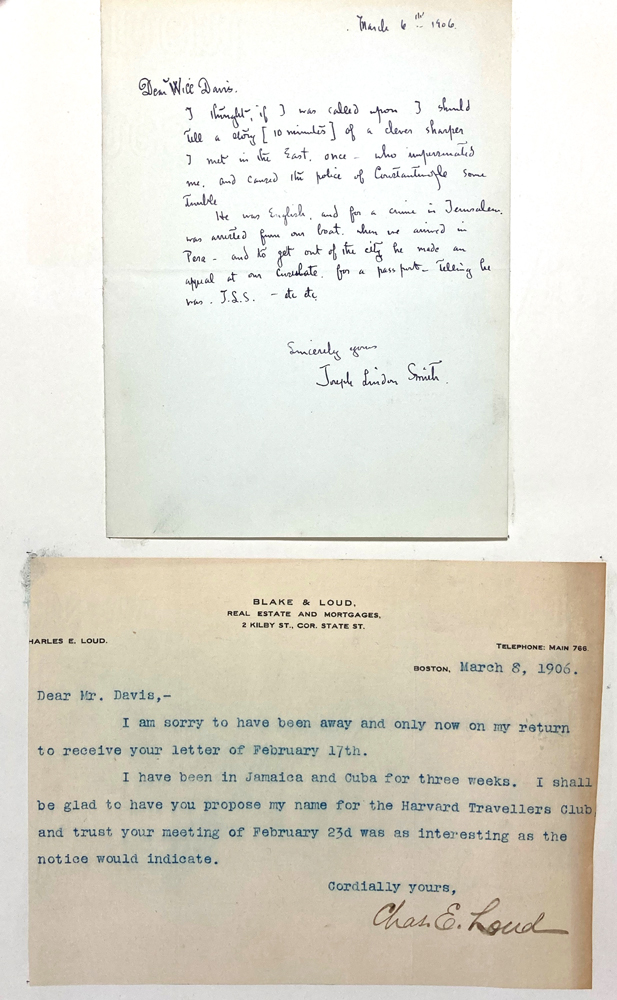 March 6th 1906.
Dear Will Davis.
I thought, if I was called upon I should
tell a story [10 minutes] of a clever sharper
I met in the East. once - who impersonated
me. and caused the police of Constantinople some
trouble
He was English. and for a crime in Jerusalem.
was arrested from our boat. when we arrived in
Pera - and to get out of the city he made an
appeal at our Consulate. for a passport - telling he
was. J.L.S. - etc etc
Sincerely yours
Joseph Lindon Smith.
BLAKE & LOUD,
REAL ESTATE AND MORTGAGES,
2 KILBY ST., COR. STATE ST.
HARLES E. LOUD.
TELEPHONE: MAIN 766.
BOSTON, March 8, 1906.
Dear Mr. Davis,-
I am sorry to have been away and only now on my return
to receive your letter of February 17th.
I have been in Jamaica and Cuba for three weeks. I shall
be glad to have you propose my name for the Harvard Travellers Club
and trust your meeting of February 23d was as interesting as the
notice would indicate.
Cordially yours,
Chas. E. Loud